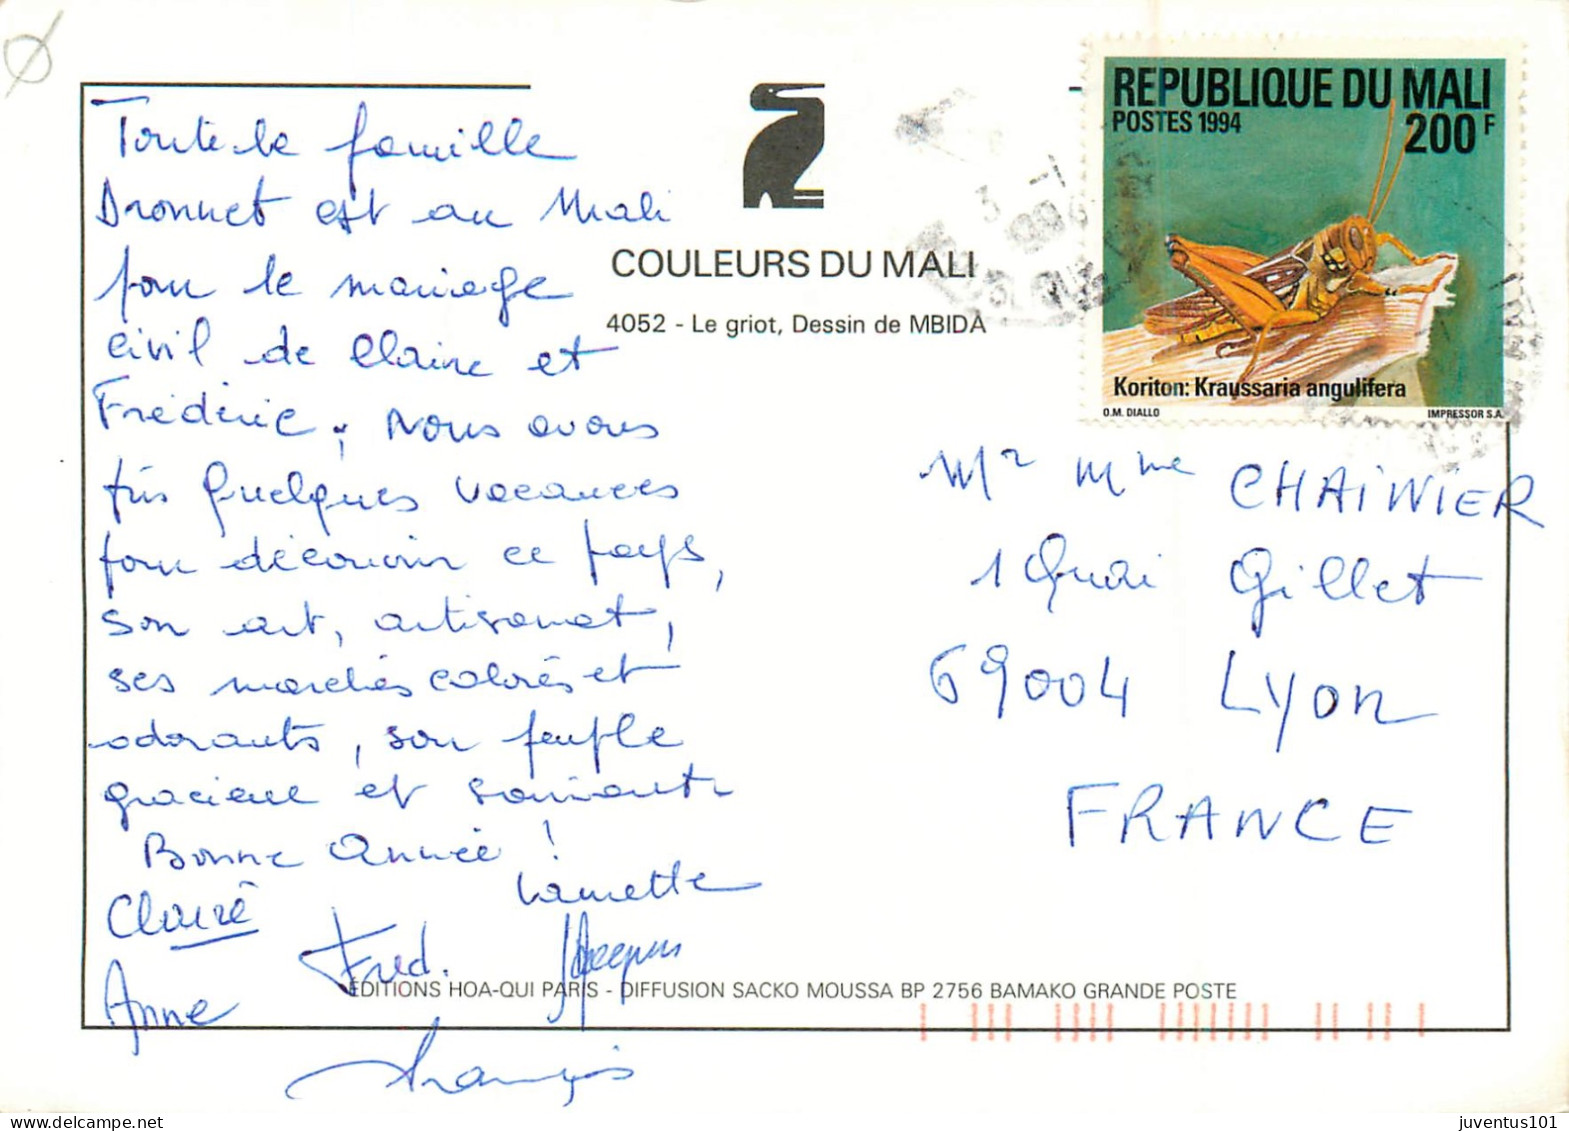 Toute la famille
Dronnet est au Mali
pour le mariage
civil de Claire et
Frédéric. Nous avons
pris quelques vacances
pour découvrir ce pays,
son art, artisanat,
ses marchés colorés et
odorants, son peuple
gracieux et souriant
Bonne Année !
Claire
Fred.
Jacques
Anne
François
COULEURS DU MALI
4052 - Le griot, Dessin de MBIDA
REPUBLIQUE DU MALI
POSTES 1994
200 F
Koriton: Kraussaria angulifera
O.M. DIALLO
IMPRESSOR S.A.
Mr Mme CHAINIER
1 Quai Gillet
69004 Lyon
FRANCE
EDITIONS HOA-QUI PARIS - DIFFUSION SACKO MOUSSA BP 2756 BAMAKO GRANDE POSTE
juventus101